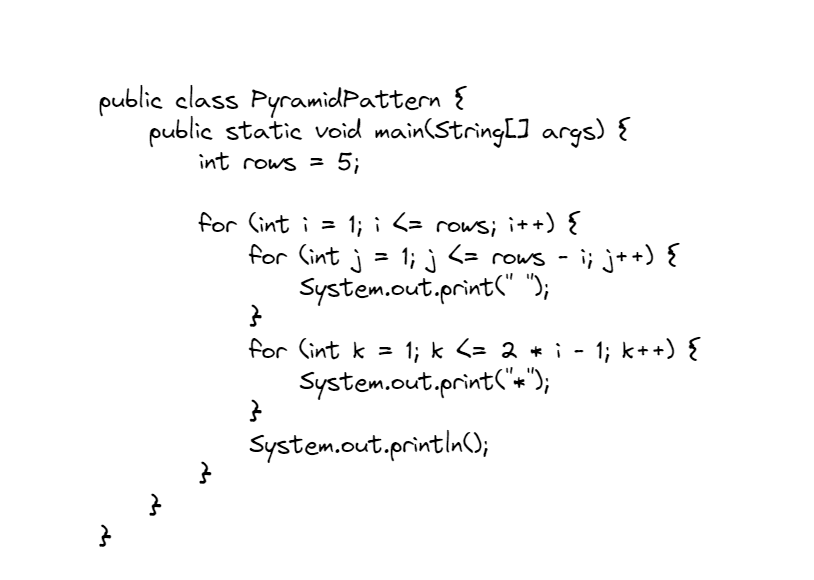 public class PyramidPattern {
    public static void main(String[] args) {
        int rows = 5;

        for (int i = 1; i <= rows; i++) {
            for (int j = 1; j <= rows - i; j++) {
                System.out.print(" ");
            }
            for (int k = 1; k <= 2 * i - 1; k++) {
                System.out.print("*");
            }
            System.out.println();
        }
    }
}